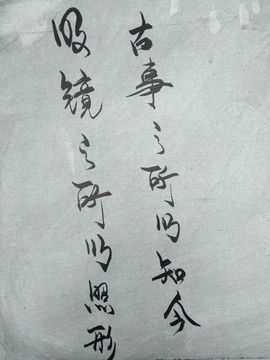 古事之所以知今
明镜之所以照形